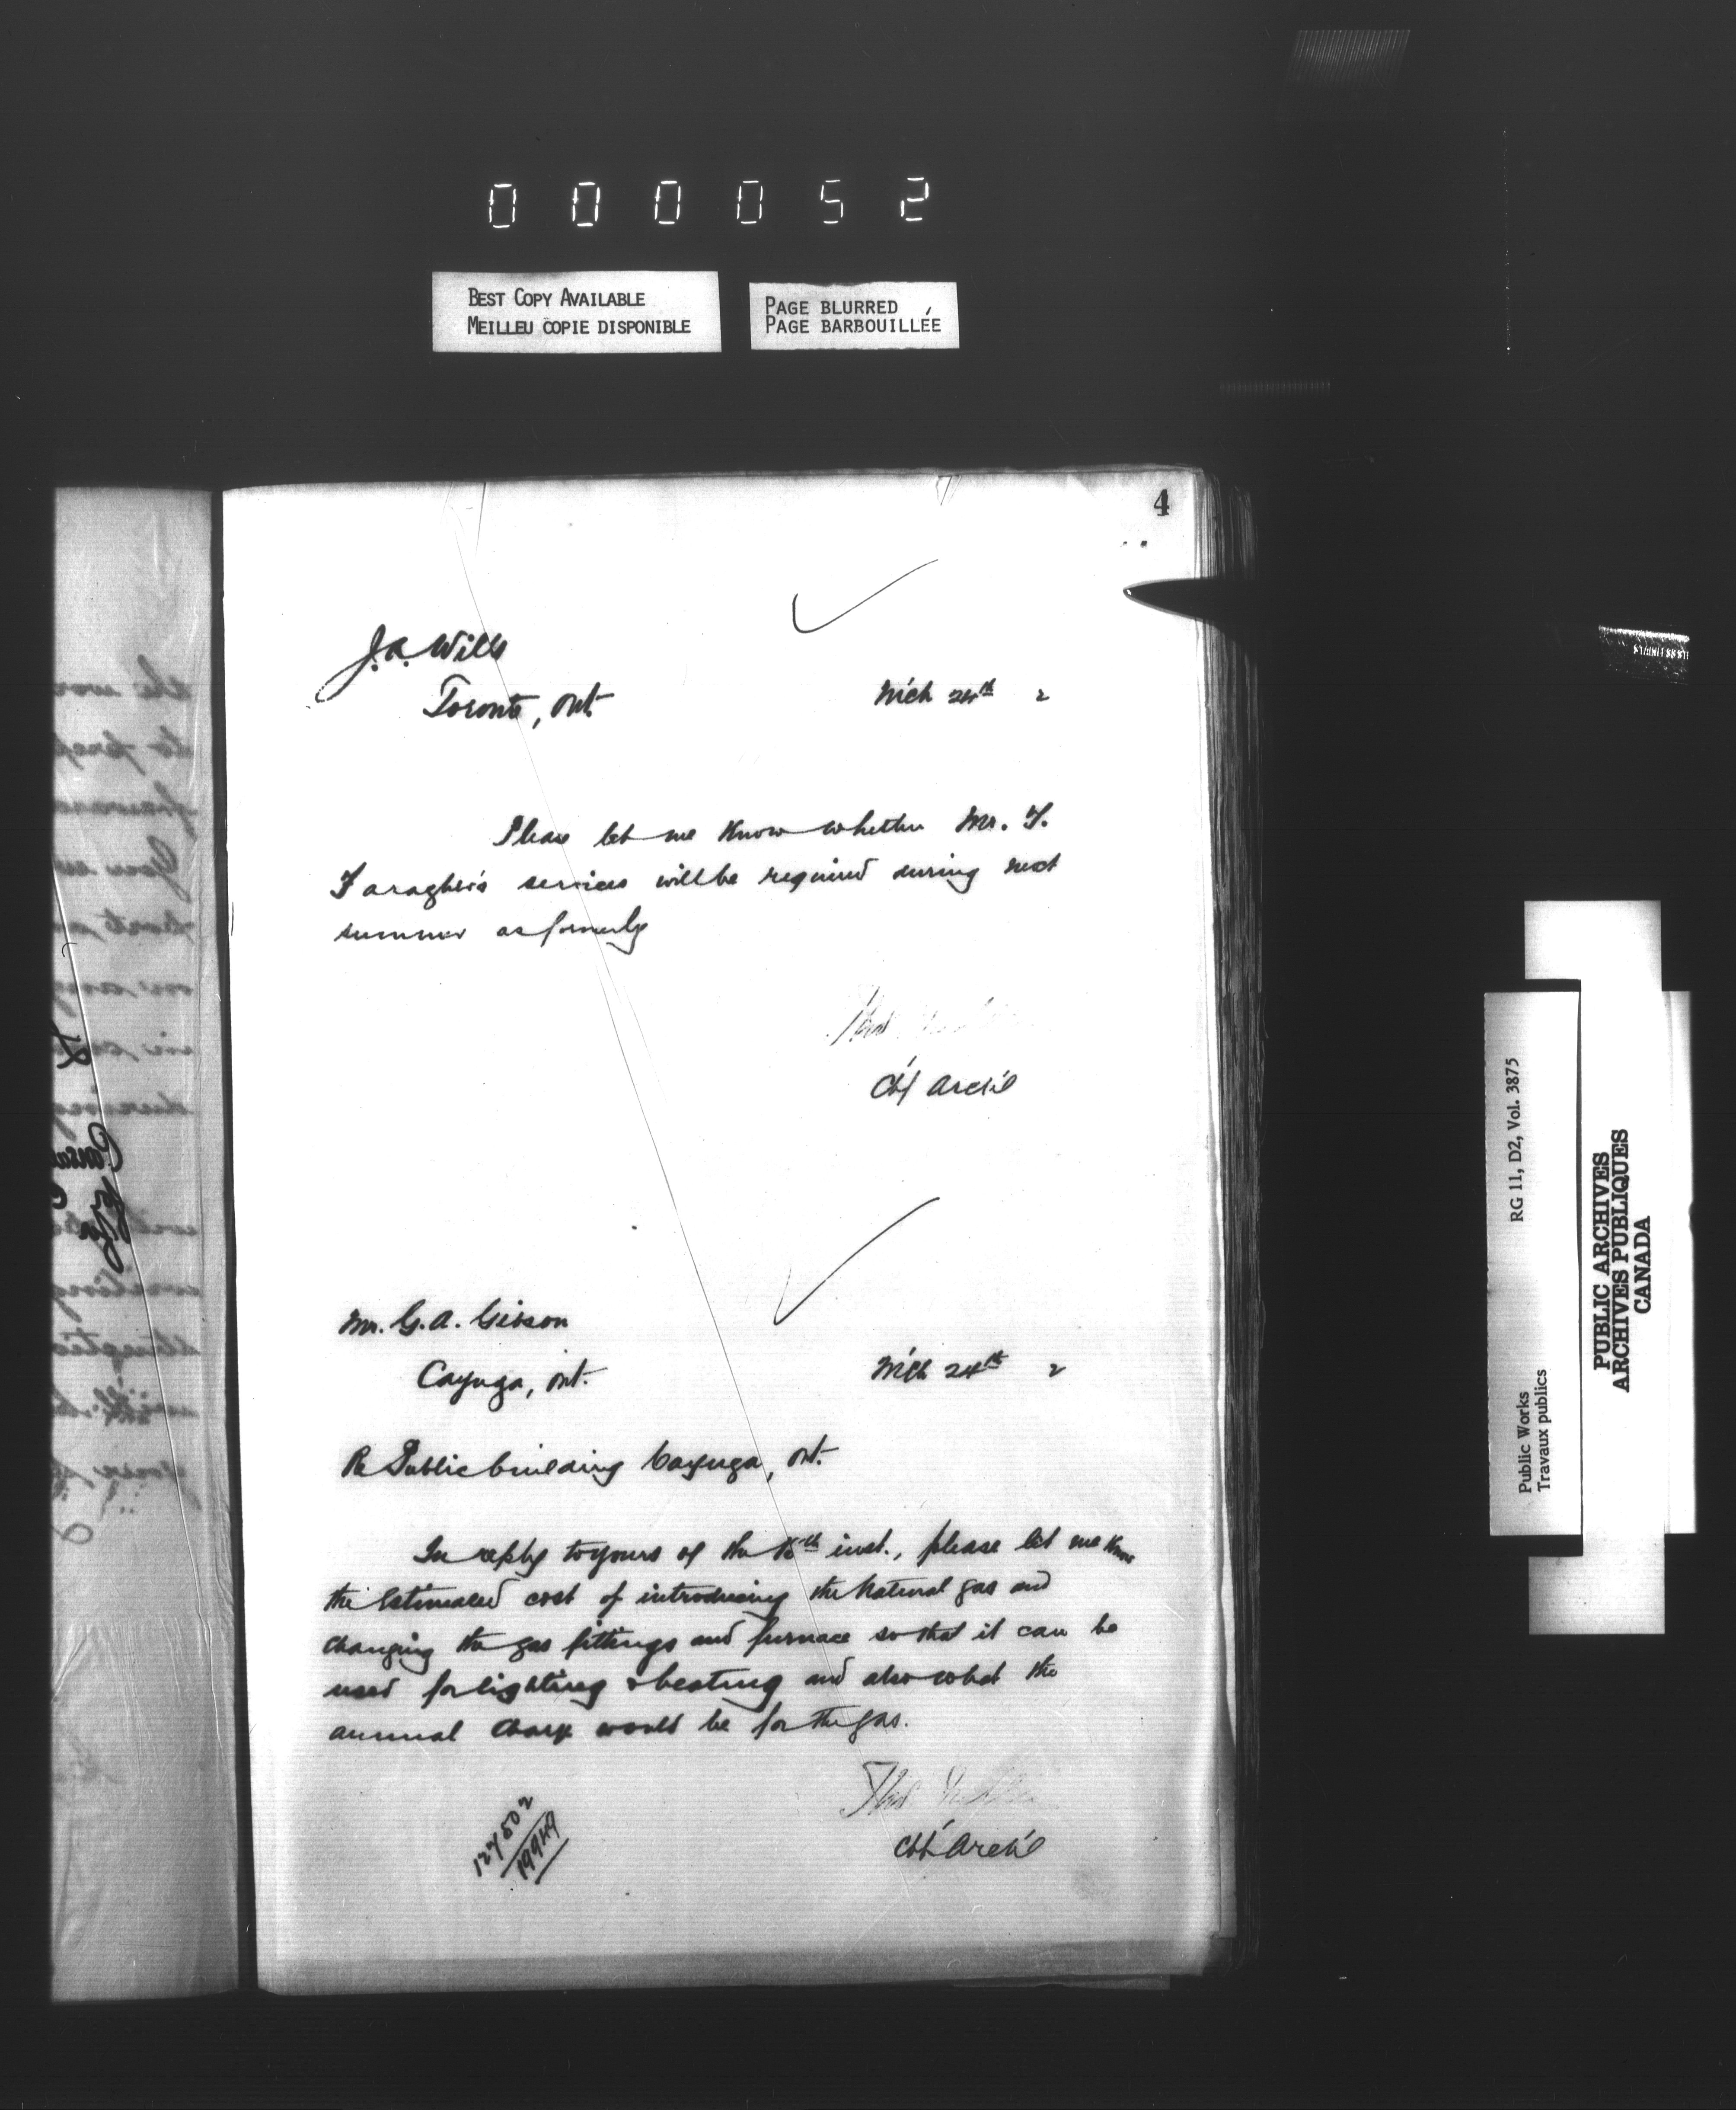 000052
BEST COPY AVAILABLE
MEILLEU COPIE DISPONIBLE
PAGE BLURRED
PAGE BARBOUILLÉE
4
J.A. Wills
Toronto, Ont.
Mch 24th 2
Please let me know whether Mr. T.
Faragher's services will be required during next
summer as formerly
Thos.
Chf Archt
Mr. G.A. Gibson
Cayuga, Ont.
Mch 24th 2
Re Public building Cayuga, Ont.
In reply to yours of the inst., please let me know
the Estimated cost of introducing the Natural gas and
changing the gas fittings and furnace so that it can be
used for lighting & heating and also what the
annual charge would be for the gas.
Thos.
Chf Archt
127502
19949
RG 11, D2, Vol. 3875
Public Works
Travaux publics
PUBLIC ARCHIVES
ARCHIVES PUBLIQUES
CANADA